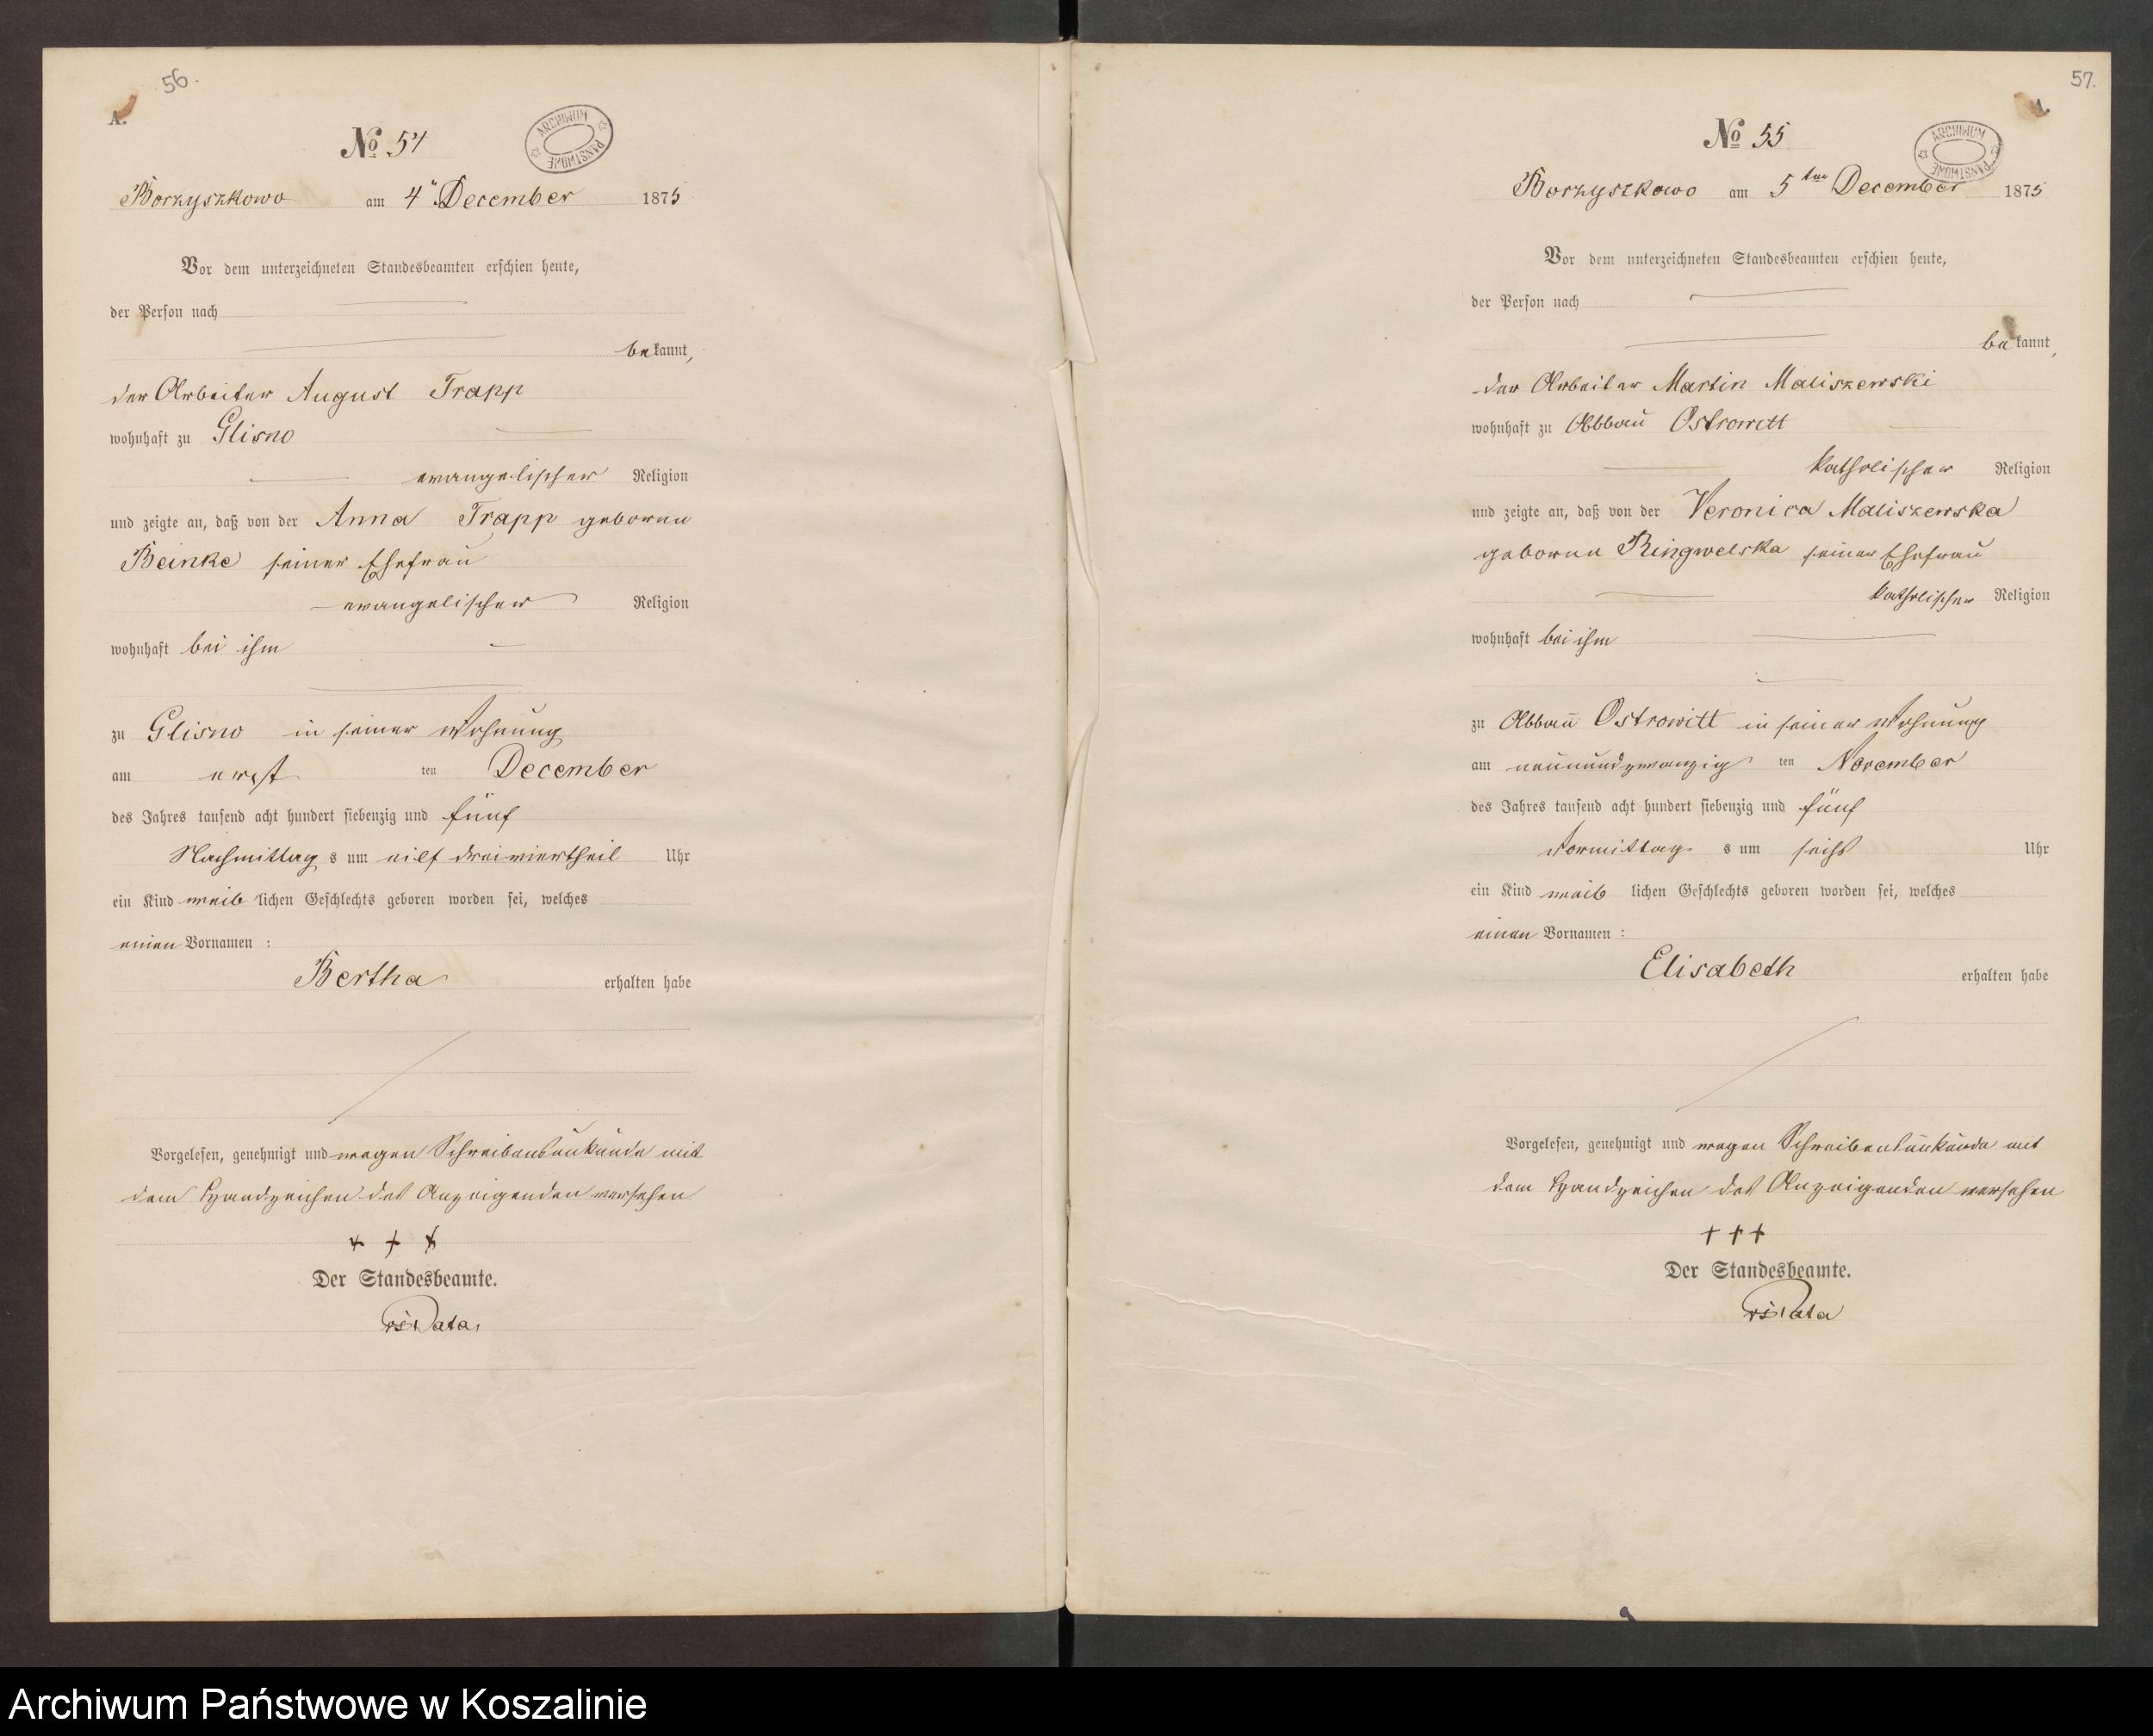 56.
A.
ARCHIWUM PAŃSTWOWE
№ 54
Borzyszkowo am 4t December 1875
Vor dem unterzeichneten Standesbeamten erschien heute,
der Person nach
bekannt,
der Arbeiter August Trapp
wohnhaft zu Glisno
evangelischer Religion
und zeigte an, daß von der Anna Trapp geborne
Beinke seiner Ehefrau
evangelischer Religion
wohnhaft bei ihm
zu Glisno in seiner Wohnung
am erst ten December
des Jahres tausend acht hundert siebenzig und fünf
Nachmittag s um eilf dreiviertheil Uhr
ein Kind weib lichen Geschlechts geboren worden sei, welches
einen Vornamen :
Bertha erhalten habe
Vorgelesen, genehmigt und wegen Schreibensunkunde mit
dem Handzeichen des Anzeigenden versehen
+ + +
Der Standesbeamte.
57.
A.
ARCHIWUM PAŃSTWOWE
№ 55
Borzyszkowo am 5ten December 1875
Vor dem unterzeichneten Standesbeamten erschien heute,
der Person nach
bekannt,
der Arbeiter Martin Maliszewski
wohnhaft zu Abbau Ostrowitt
katholischer Religion
und zeigte an, daß von der Veronica Maliszewska
geborne Ringwelska seiner Ehefrau
katholischer Religion
wohnhaft bei ihm
zu Abbau Ostrowitt in seiner Wohnung
am neunundzwanzig ten November
des Jahres tausend acht hundert siebenzig und fünf
Vormittag s um sechs Uhr
ein Kind weib lichen Geschlechts geboren worden sei, welches
einen Vornamen :
Elisabeth erhalten habe
Vorgelesen, genehmigt und wegen Schreibensunkunde mit
dem Handzeichen des Anzeigenden versehen
+ + +
Der Standesbeamte.
Archiwum Państwowe w Koszalinie